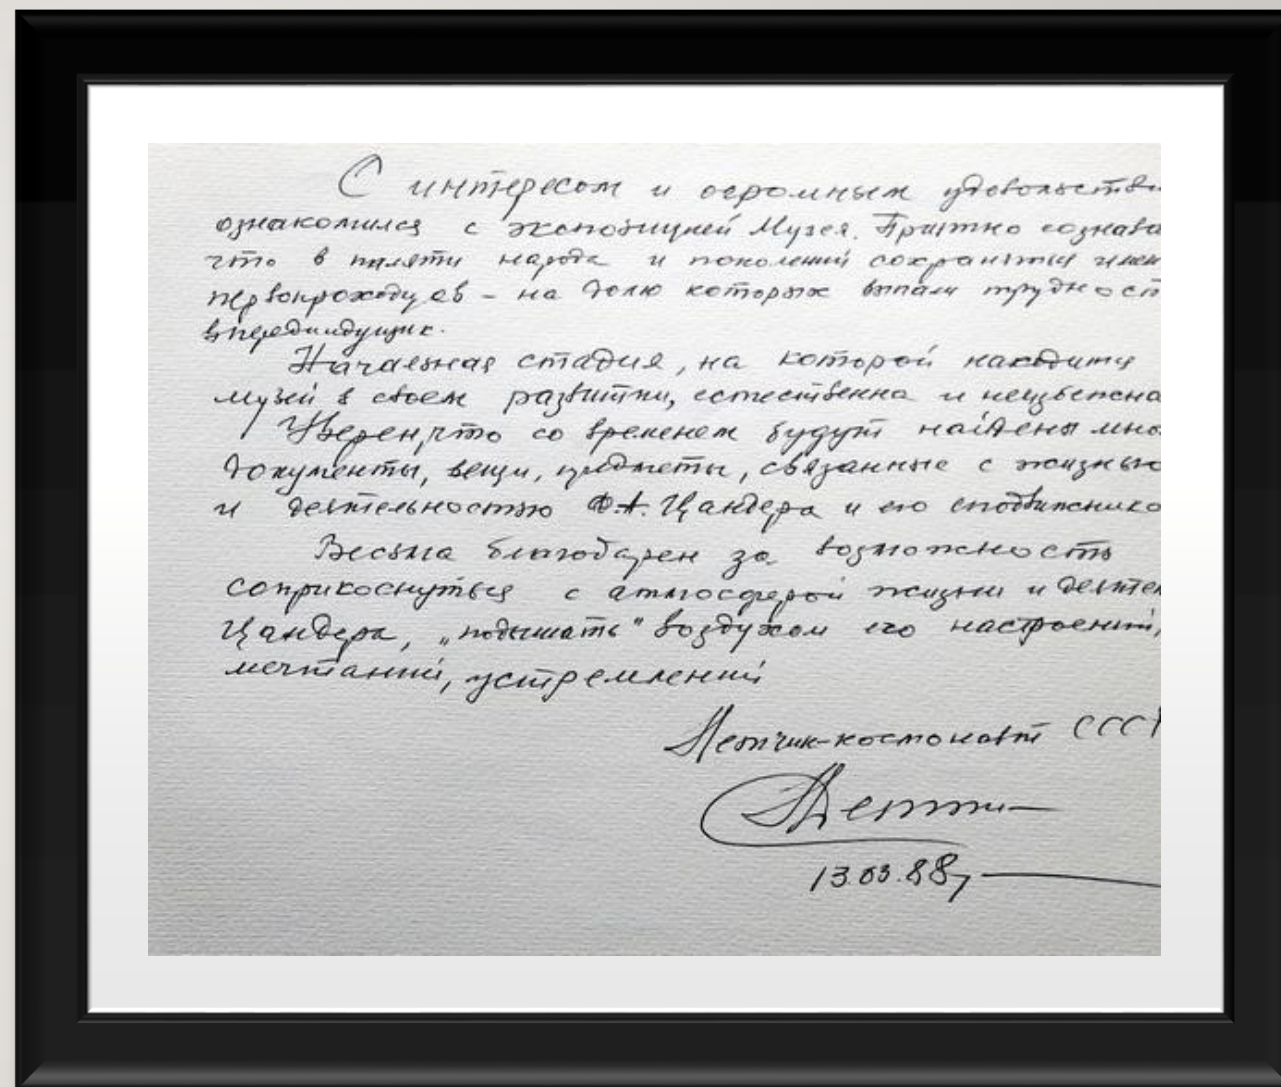 С интересом и огромным удовольстви
ознакомился с экспозицией Музея. Приятно сознава
что в памяти народа и поколений сохранятся имен
первопроходцев – на долю которых выпали трудност
впередиидущих.
Начальная стадия, на которой находится
музей в своем развитии, естественна и неизбежна
Уверен, что со временем будут найдены мно
документы, вещи, предметы, связанные с жизнью
и деятельностью Ф.А. Цандера и его сподвижнико
Весьма благодарен за возможность
соприкоснуться с атмосферой жизни и деятел
Цандера, „подышать" воздухом его настроений,
мечтаний, устремлений
Летчик-космонавт СССР
13.03.88г